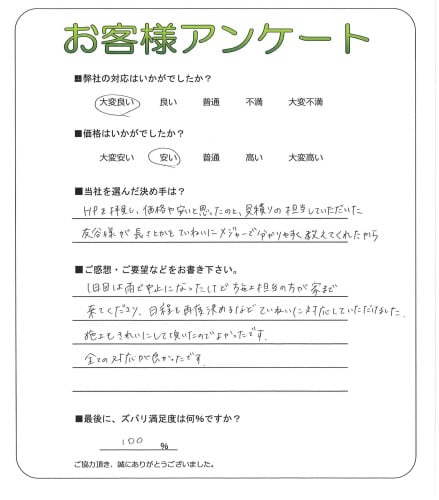 お客様アンケート
■弊社の対応はいかがでしたか？
大変良い 良い 普通 不満 大変不満
■価格はいかがでしたか？
大変安い 安い 普通 高い 大変高い
■当社を選んだ決め手は？
HPを拝見し、価格が安いと思ったのと、見積りの担当していただいた
灰谷様が長さとかをていねいにメジャーで分かりやすく教えてくれたから
■ご感想・ご要望などをお書き下さい。
1日目は雨で中止になったけど施工担当の方が家まで
来てくださり、日程を再度決めるなどていねいに対応していただけました。
施工もきれいにして頂いたのでよかったです。
全ての対応が良かったです。
■最後に、ズバリ満足度は何％ですか？
100 ％
ご協力頂き、誠にありがとうございました。